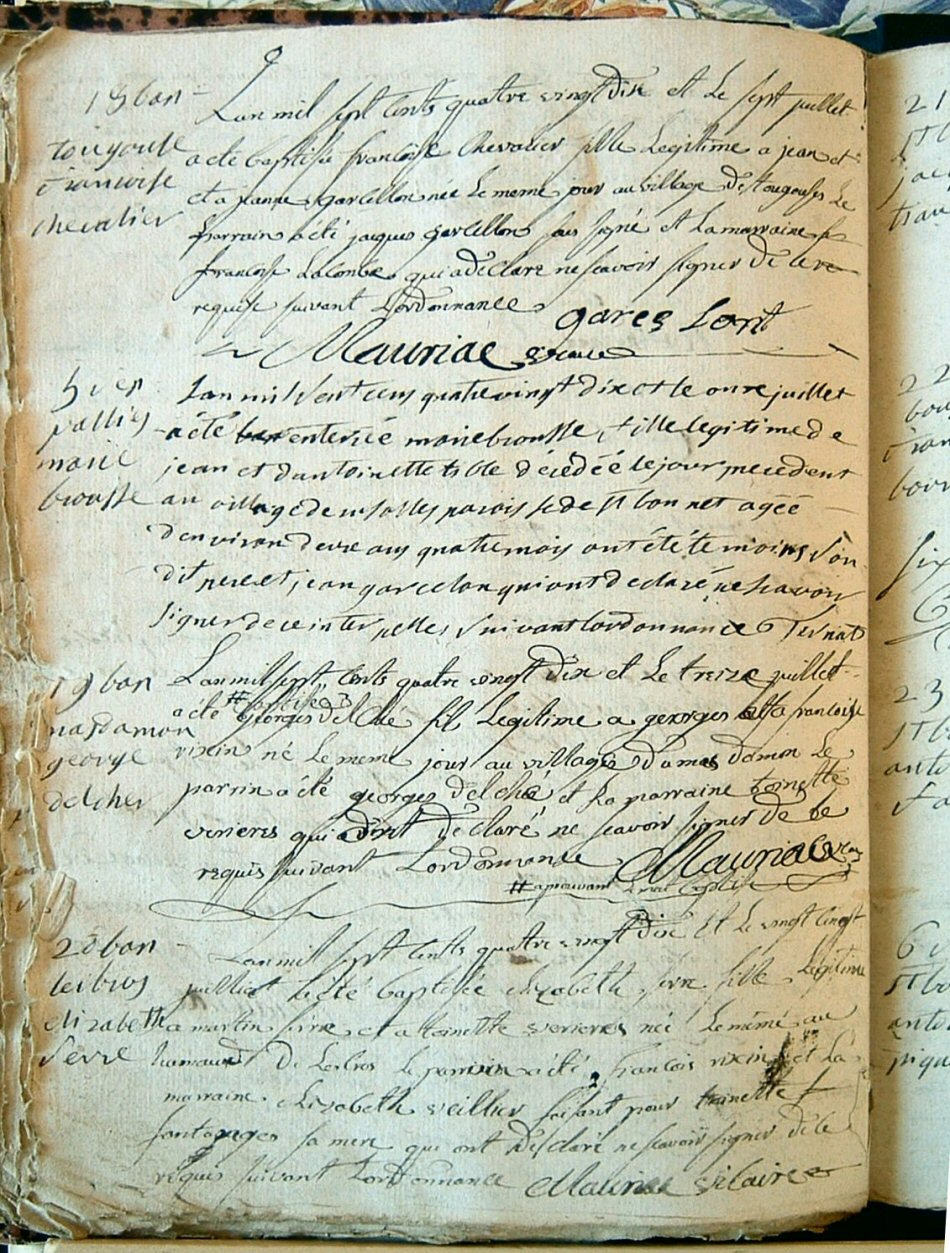 18 ban
touyouse
francoise
chevalier
Lan mil sept cents quatre vingt dix et le sept juillet
a eté baptisée francoise Chevalier fille Legitime a jean et
et a jeanne garcellon née le meme jour au village De tougouses Le
parrain a été jacques garcellon sous signé et La marraine
francoise Lacombe qui a declaré ne scavoir signer de ce
requise suivant Lordonnance garceslont
Mauriac vicaire
5 en
pallies
marie
brousse
Lan mil sept cens quatre vingt dix et le onze juillet
a été enterrée marie brousse, fille legitime de
jean et dantoinette tible décédée le jour precedent
au village de salles paroisse de st bonnet agée
denviron deux ans quatre mois ont été témoins son
dit pere et jean garcelon qui ont declaré ne scavoir
signer de ce interpellés suivant lordonnance Ternat
19 ban
masdamon
george
delcher
Lan mil sept cents quatre vingt dix et Le treize juillet
a eté # baptisé georges delché fil Legitime a georges et a francoise
rixin né Le meme jour au village Du mas damon Le
parrin a été georges delché et La marraine toinette
verieres qui ont declaré ne scavoir signer de ce
requis suivant Lordonnance Mauriac vic
# aprouvant Le mot baptisé
20 ban
leibros
elizabeth
serre
Lan mil sept cents quatre vingt Dix Et Le vingt cinqt
juilliet a été baptisée elizabeth serre fille Legitime
a martin serre et a toinette verieres née Le même au
hameau De Leibros le parrain a été francois rixin et La
marraine elizabeth veillier faisant pour toinette
fontanges sa mere qui ont Declaré ne scavoir signer de ce
requis suivant Lordonnance Mauriac vicaire
21
22
23